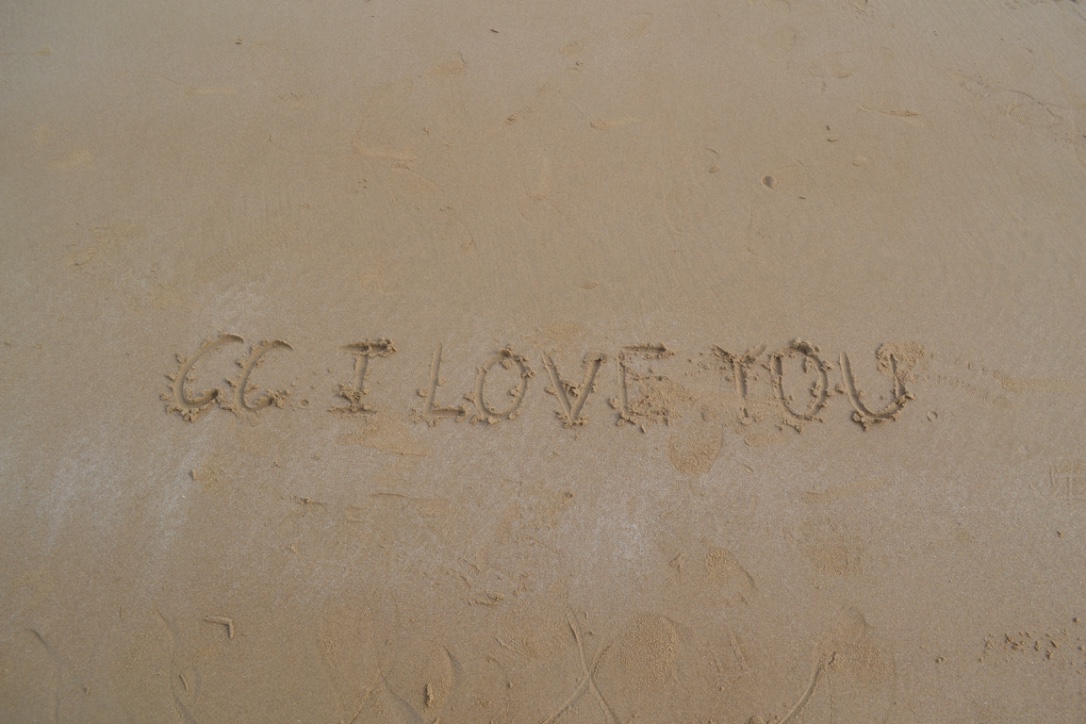 CC I LOVE YOU